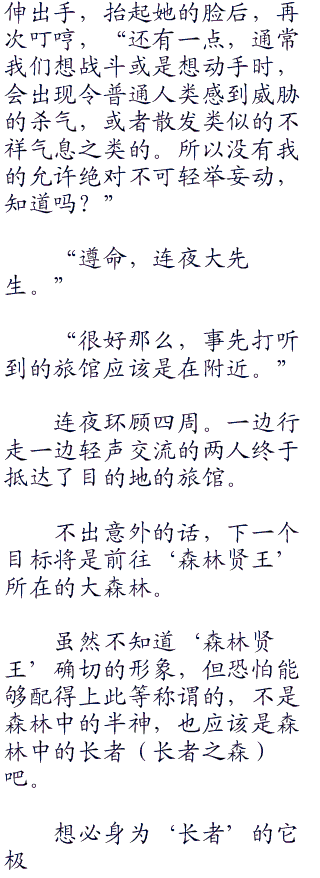 伸出手，抬起她的脸后，再
次叮咛，“还有一点，通常
我们想战斗或是想动手时，
会出现令普通人类感到威胁
的杀气，或者散发类似的不
祥气息之类的。所以没有我
的允许绝对不可轻举妄动，
知道吗？”
“遵命，连夜大先
生。”
“很好那么，事先打听
到的旅馆应该是在附近。”
连夜环顾四周。一边行
走一边轻声交流的两人终于
抵达了目的地的旅馆。
不出意外的话，下一个
目标将是前往‘森林贤王’
所在的大森林。
虽然不知道‘森林贤
王’确切的形象，但恐怕能
够配得上此等称谓的，不是
森林中的半神，也应该是森
林中的长者（长者之森）
吧。
想必身为‘长者’的它
极